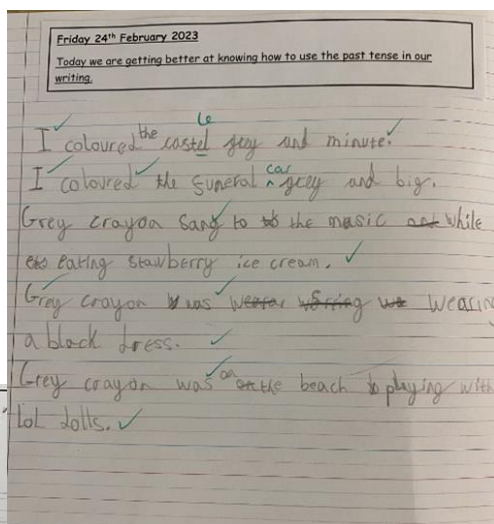 Friday 24th February 2023
Today we are getting better at knowing how to use the past tense in our
writing.
le
I coloured the castel grey and minute.
I coloured the funeral car grey and big.
Grey crayon sang to the music while
eating stawberry ice cream.
Grey crayon was wearing
a black dress.
Grey crayon was on the beach playing with
lol dolls.